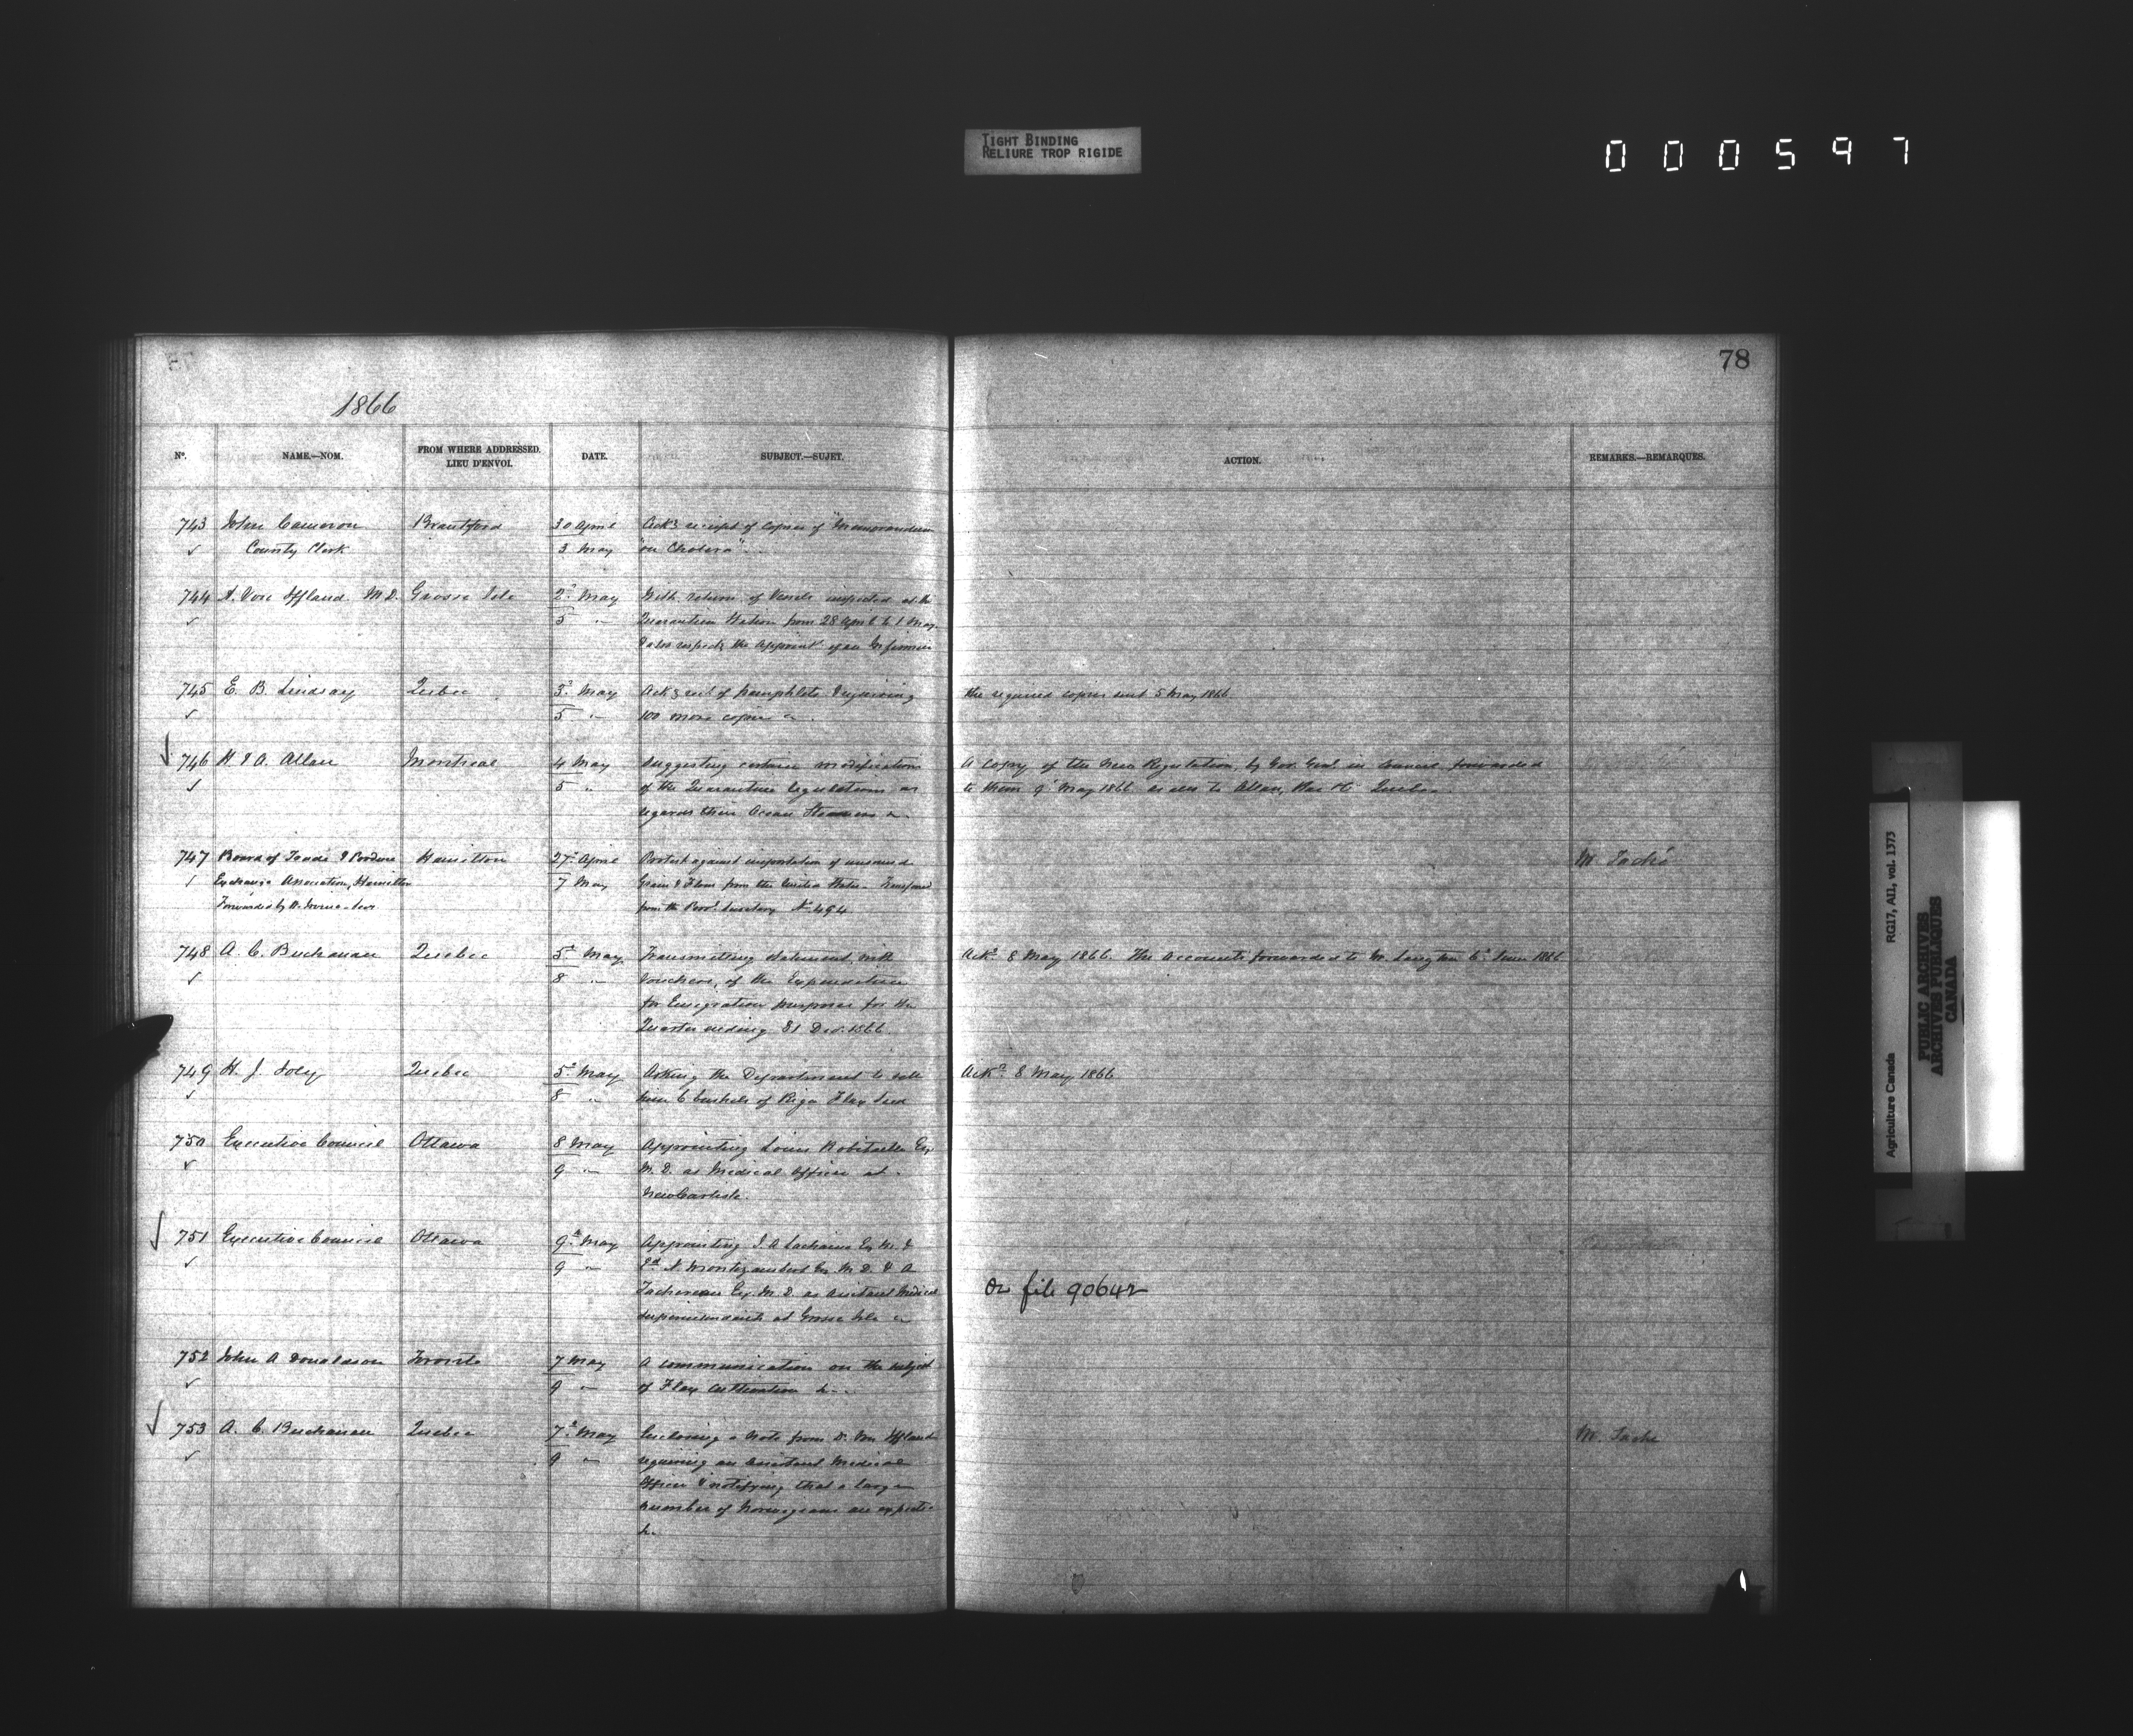 TIGHT BINDING
RELIURE TROP RIGIDE
000597
78
1866
Nº. NAME.—NOM. FROM WHERE ADDRESSED. LIEU D'ENVOI. DATE. SUBJECT.—SUJET. ACTION. REMARKS.—REMARQUES.
743 John Cameron Brantford 30 April Ackg receipt of copies of "Memorandum
✓ County Clerk 3 May "on Cholera"
744 A. Von Iffland M.D. Grosse Isle 2d May With return of Vessels inspected at the
✓ 5 " Quarantine Station from 28 April to 1 May
& also respectg the Appoint of an Infirmier
745 E. B. Lindsay Quebec 3d May Ackg rect of pamphlets & requiring the required copies sent 5 May 1866
✓ 5 " 100 more copies
✓ 746 H & A. Allan Montreal 4 May Suggesting certain modifications A copy of the New Regulation, by Gov. Genl. in Council forwarded
✓ 5 " of the Quarantine regulations as to them 9 May 1866 as also to Allan, Rae & Co Quebec
regards their Ocean Steamers
747 Board of Trade & Produce Hamilton 27 April Protest against importation of unsound M. Taché
✓ Exchange Association, Hamilton 7 May Grain & Flour from the United States - Transferred
Forwarded by from the Provl. Secretary No 494
748 A. C. Buchanan Quebec 5 May Transmitting statement, with Ackd 8 May 1866. The Accounts forwarded to Mr. Langton 6 June 1866
✓ 8 " vouchers, of the Expenditure
for Emigration purposes for the
Quarter ending 31 1866
749 H. J. Joly Quebec 5 May Asking the Department to sell Ackd 8 May 1866
✓ 8 " him 6 bushels of Riga Flax Seed
750 Executive Council Ottawa 8 May Appointing Louis Robitaille Esq.
✓ 9 " M. D. as Medical Officer at
New Carlisle.
✓ 751 Executive Council Ottawa 9 May Appointing
✓ 9 " Montizambert Esq. M. D. & A
Taschereau Esq. M. D. as Assistant Medical On file 90642
Superintendants at Grosse Isle
752 John A Donaldson Toronto 7 May A communication on the subject
✓ 9 " of Flax Cultivation &c
✓ 753 A. C. Buchanan Quebec 7 May Enclosing a note from D. Von Iffland M. Taché
✓ 9 " requiring an Assistant Medical
Officer & notifying that a large
number of Norwegians are expected
&c
Agriculture Canada RG17, AI1, vol. 1373
PUBLIC ARCHIVES
ARCHIVES PUBLIQUES
CANADA